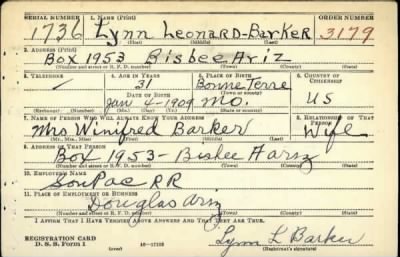 SERIAL NUMBER 1. NAME (Print) ORDER NUMBER
1736 Lynn Leonard-Barker 3179
(First) (Middle) (Last)
2. ADDRESS (Print)
Box 1953 Bisbee Ariz
(Number and street or R. F. D. number) (Town) (County) (State)
3. TELEPHONE 4. AGE IN YEARS 5. PLACE OF BIRTH 6. COUNTRY OF CITIZENSHIP
31 Bonne Terre
DATE OF BIRTH (Town or county)
Jan 4-1909 Mo. US
(Exchange) (Number) (Mo.) (Day) (Yr.) (State or country)
7. NAME OF PERSON WHO WILL ALWAYS KNOW YOUR ADDRESS 8. RELATIONSHIP OF THAT PERSON
Mrs Winifred Barker Wife
(Mr., Mrs., Miss) (First) (Middle) (Last)
9. ADDRESS OF THAT PERSON
Box 1953-Bisbee
(Number and street or R. F. D. number) (Town) (County) (State)
10. EMPLOYER'S NAME
Sou Pac-RR
11. PLACE OF EMPLOYMENT OR BUSINESS
Douglas Ariz
(Number and street or R. F. D. number) (Town) (County) (State)
I AFFIRM THAT I HAVE VERIFIED ABOVE ANSWERS AND THAT THEY ARE TRUE.
REGISTRATION CARD
D. S. S. Form 1 Lynn L Barker
(Registrant's signature)